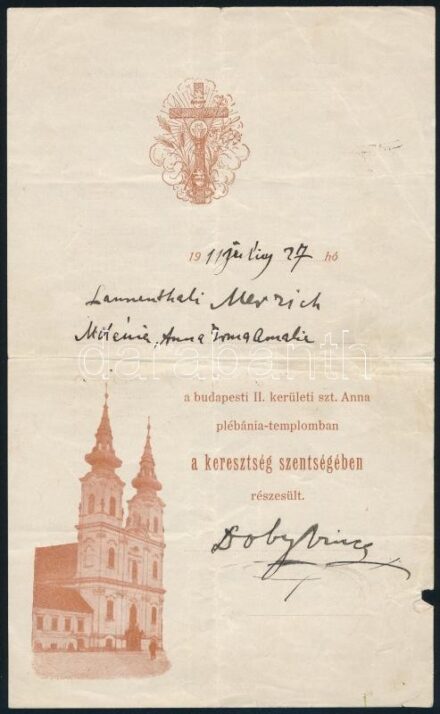 1911 július 27 hó
Lannenthali Merzich
Melénia, Anna Irma Amalie
darabanth
a budapesti II. kerületi szt. Anna
plébánia-templomban
a keresztség szentségében
részesült.
Doby Vince